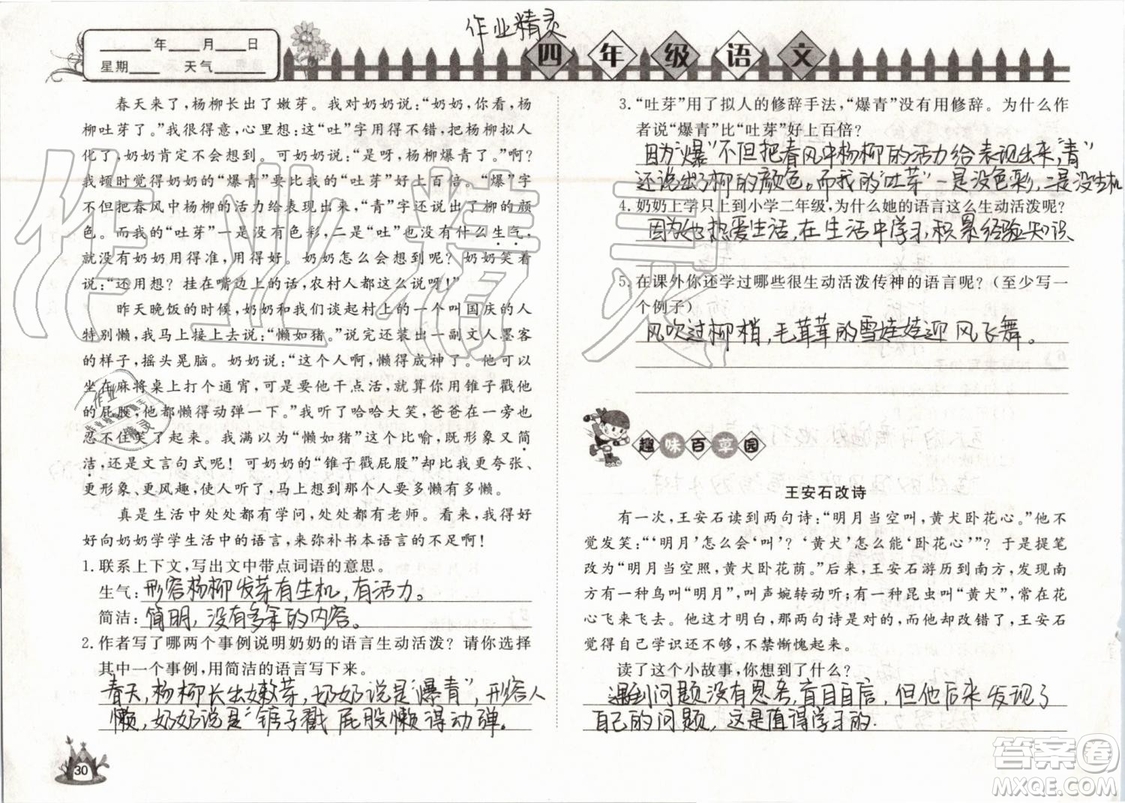 作业精灵
____年____月____日
星期____ 天气____
四年级语文
春天来了，杨柳长出了嫩芽。我对奶奶说：“奶奶，你看，杨
柳吐芽了。”我很得意，心里想：这“吐”字用得不错，把杨柳拟人
化了，奶奶肯定不会想到。可奶奶说：“是呀，杨柳爆青了。”啊？
我顿时觉得奶奶的“爆青”要比我的“吐芽”好上百倍。“爆”字不
但把春风中杨柳的活力给表现出来，“青”字还说出了杨柳的颜
色。而我的“吐芽”一是没有色彩，二是“吐”也没有什么生气，
就没有奶奶用得准，用得好。奶奶怎么会想到呢？奶奶笑着
说：“还用想？挂在嘴边上的话，农村人都这么说呀！”
昨天晚饭的时候，奶奶和爸爸谈起村上一个叫国庆的人
特别懒，我马上接上去说：“懒如猪。”说完还装出一副文人墨客
的样子，摇头晃脑。奶奶说：“这个人啊，懒得成精了，他可以
坐在麻将桌上打个通宵，可是到田里干点活，就算你用锥子戳
他的屁股，他都懒得动弹一下。”我听了哈哈大笑，爸爸在一旁
忍不住笑了起来。我满以为“懒如猪”这一句，既形象又简
洁，还是文言句式！可奶奶的“锥子戳屁股”比我更夸张、
更形象、更风趣，使人不由得去想这个人有多懒。
真是生活中处处都有学问，处处都有老师。我想，我得好
好向奶奶学学生活中的语言，来弥补书本语言的不足啊！
1.联系上下文，写出文中带点词语的意思。
生气：形容杨柳发芽有生机，有活力。
简洁：简明，没有多余的内容。
2.作者写了哪两个事例说明奶奶的语言生动活泼？请你选择
其中一个事例，用简洁的语言写下来。
春天，杨柳长出嫩芽，奶奶说是“爆青”，形容人
懒，奶奶说是“锥子戳屁股懒得动弹。
30
3.“吐芽”用了拟人的修辞手法，“爆青”没有用修辞。为什么作
者说“爆青”比“吐芽”好上百倍？
因为“爆”不但把春风中杨柳的活力给表现出来，“青”
还说出了柳的颜色。而我的“吐芽”一是没色彩，二是没生机
4.奶奶上学只上到小学二年级，为什么她的语言这么生动活泼呢？
因为她热爱生活，在生活中学习，积累经验知识
5.在课外你还学过哪些很生动活泼传神的语言呢？（至少写一
个例子）
风吹过柳梢，毛茸茸的雪娃娃迎风飞舞。
趣味百草园
王安石改诗
有一次，王安石读到两句诗：“明月当空叫，黄犬卧花心。”他不
觉发笑：“‘明月’怎么会‘叫’？‘黄犬’怎么能‘卧花心’？”于是提笔
改为“明月当空照，黄犬卧花荫。”后来，王安石游历到南方，南方
有一种鸟叫“明月”，叫声婉转动听；有一种昆虫叫“黄犬”，常在花
心飞来飞去。他这才明白，那两句诗是对的，是自己改错了。王安石
觉得自己学识还不够，不禁惭愧起来。
读了这个小故事，你想到了什么？
遇到问题没有思考，盲目自信，但他后来发现了
自己的问题，这是值得学习的.
作业精灵
答案圈
MXQE.COM